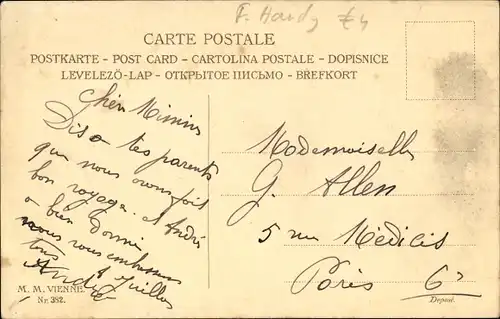 F. Hardy £4
CARTE POSTALE
POSTKARTE - POST CARD - CARTOLINA POSTALE - DOPISNICE
LEVELEZŐ-LAP - ОТКРЫТОЕ ПИСЬМО - BREFKORT
Cher Mimin
Dis a tes parents
que nous avons fait
bon voyage. et André
a bien dormi
nous vous embrassons
tous
André
Mademoiselle
G. Allen
5 rue Médicis
Paris 6e
M. M. VIENNE.
Nr. 382.
Deposé.